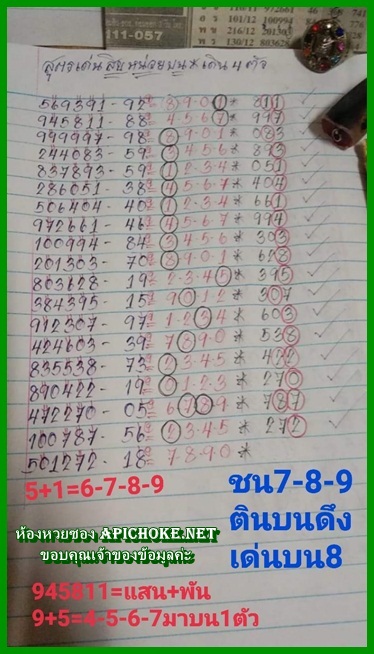 111-057
สูตรเด่นสิบหน่วยบน * เดิน 4 ตัว
569391 - 92 = 8-9-0-1 * 811
945811 - 88 = 4-5-6-7 * 997
999997 - 98 = 8-9-0-1 * 083
244083 - 59 = 3-4-5-6 * 893
837893 - 59 = 1-2-3-4 * 051
286051 - 38 = 4-5-6-7 * 404
506404 - 40 = 1-2-3-4 * 661
972661 - 46 = 4-5-6-7 * 994
100994 - 84 = 3-4-5-6 * 303
201303 - 70 = 8-9-0-1 * 628
803628 - 19 = 2-3-4-5 * 395
384395 - 15 = 9-0-1-2 * 307
912307 - 97 = 1-2-3-4 * 603
424603 - 39 = 7-8-9-0 * 538
835538 - 73 = 2-3-4-5 * 422
890422 - 19 = 0-1-2-3 * 270
472270 - 05 = 6-7-8-9 * 787
100787 - 56 = 2-3-4-5 * 272
501272 - 18 = 7-8-9-0 *
5+1=6-7-8-9
ชน7-8-9
ตินบนดึง
เด่นบน8
ห้องหวยซอง APICHOKE.NET
ขอบคุณเจ้าของข้อมูลค่ะ
945811=แสน+พัน
9+5=4-5-6-7มาบน1ตัว